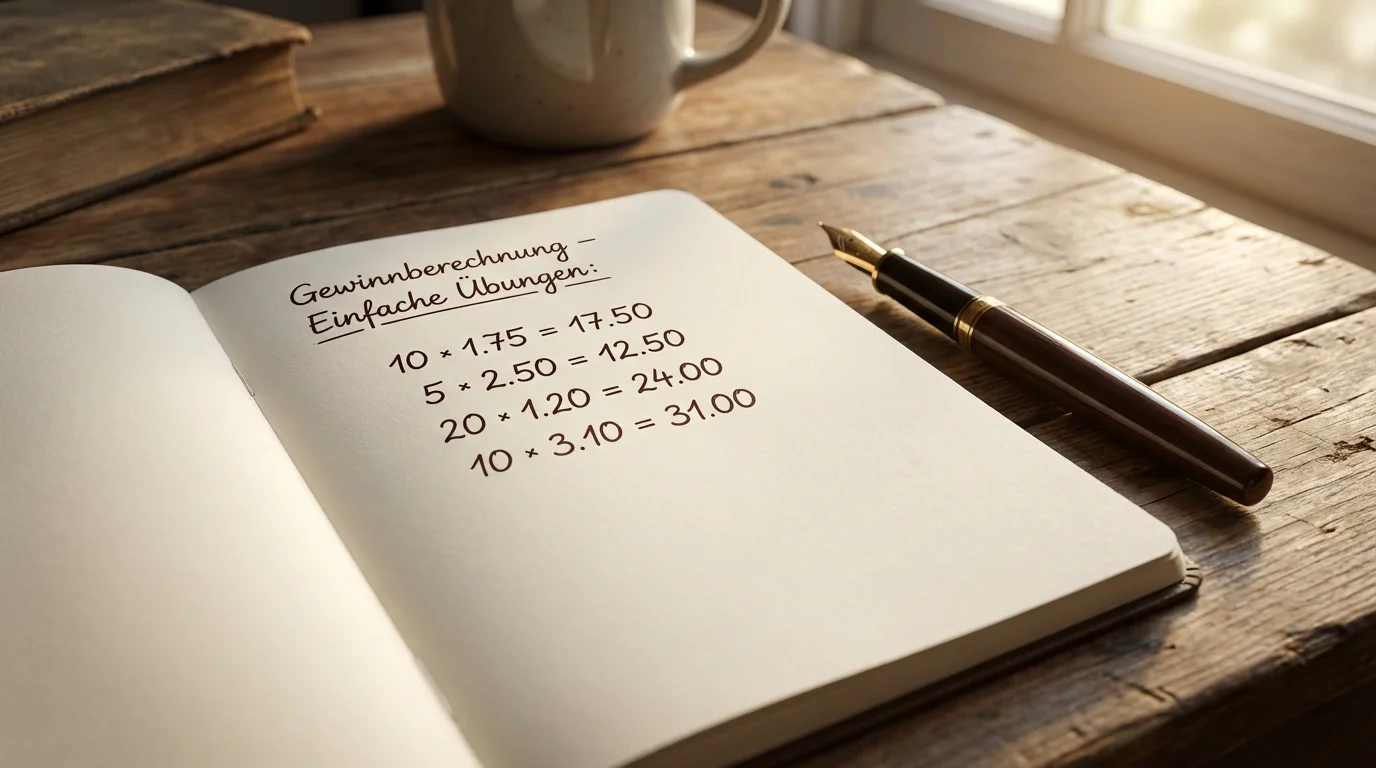 Gewinnberechnung –
Einfache Übungen:
10 × 1.75 = 17.50
5 × 2.50 = 12.50
20 × 1.20 = 24.00
10 × 3.10 = 31.00